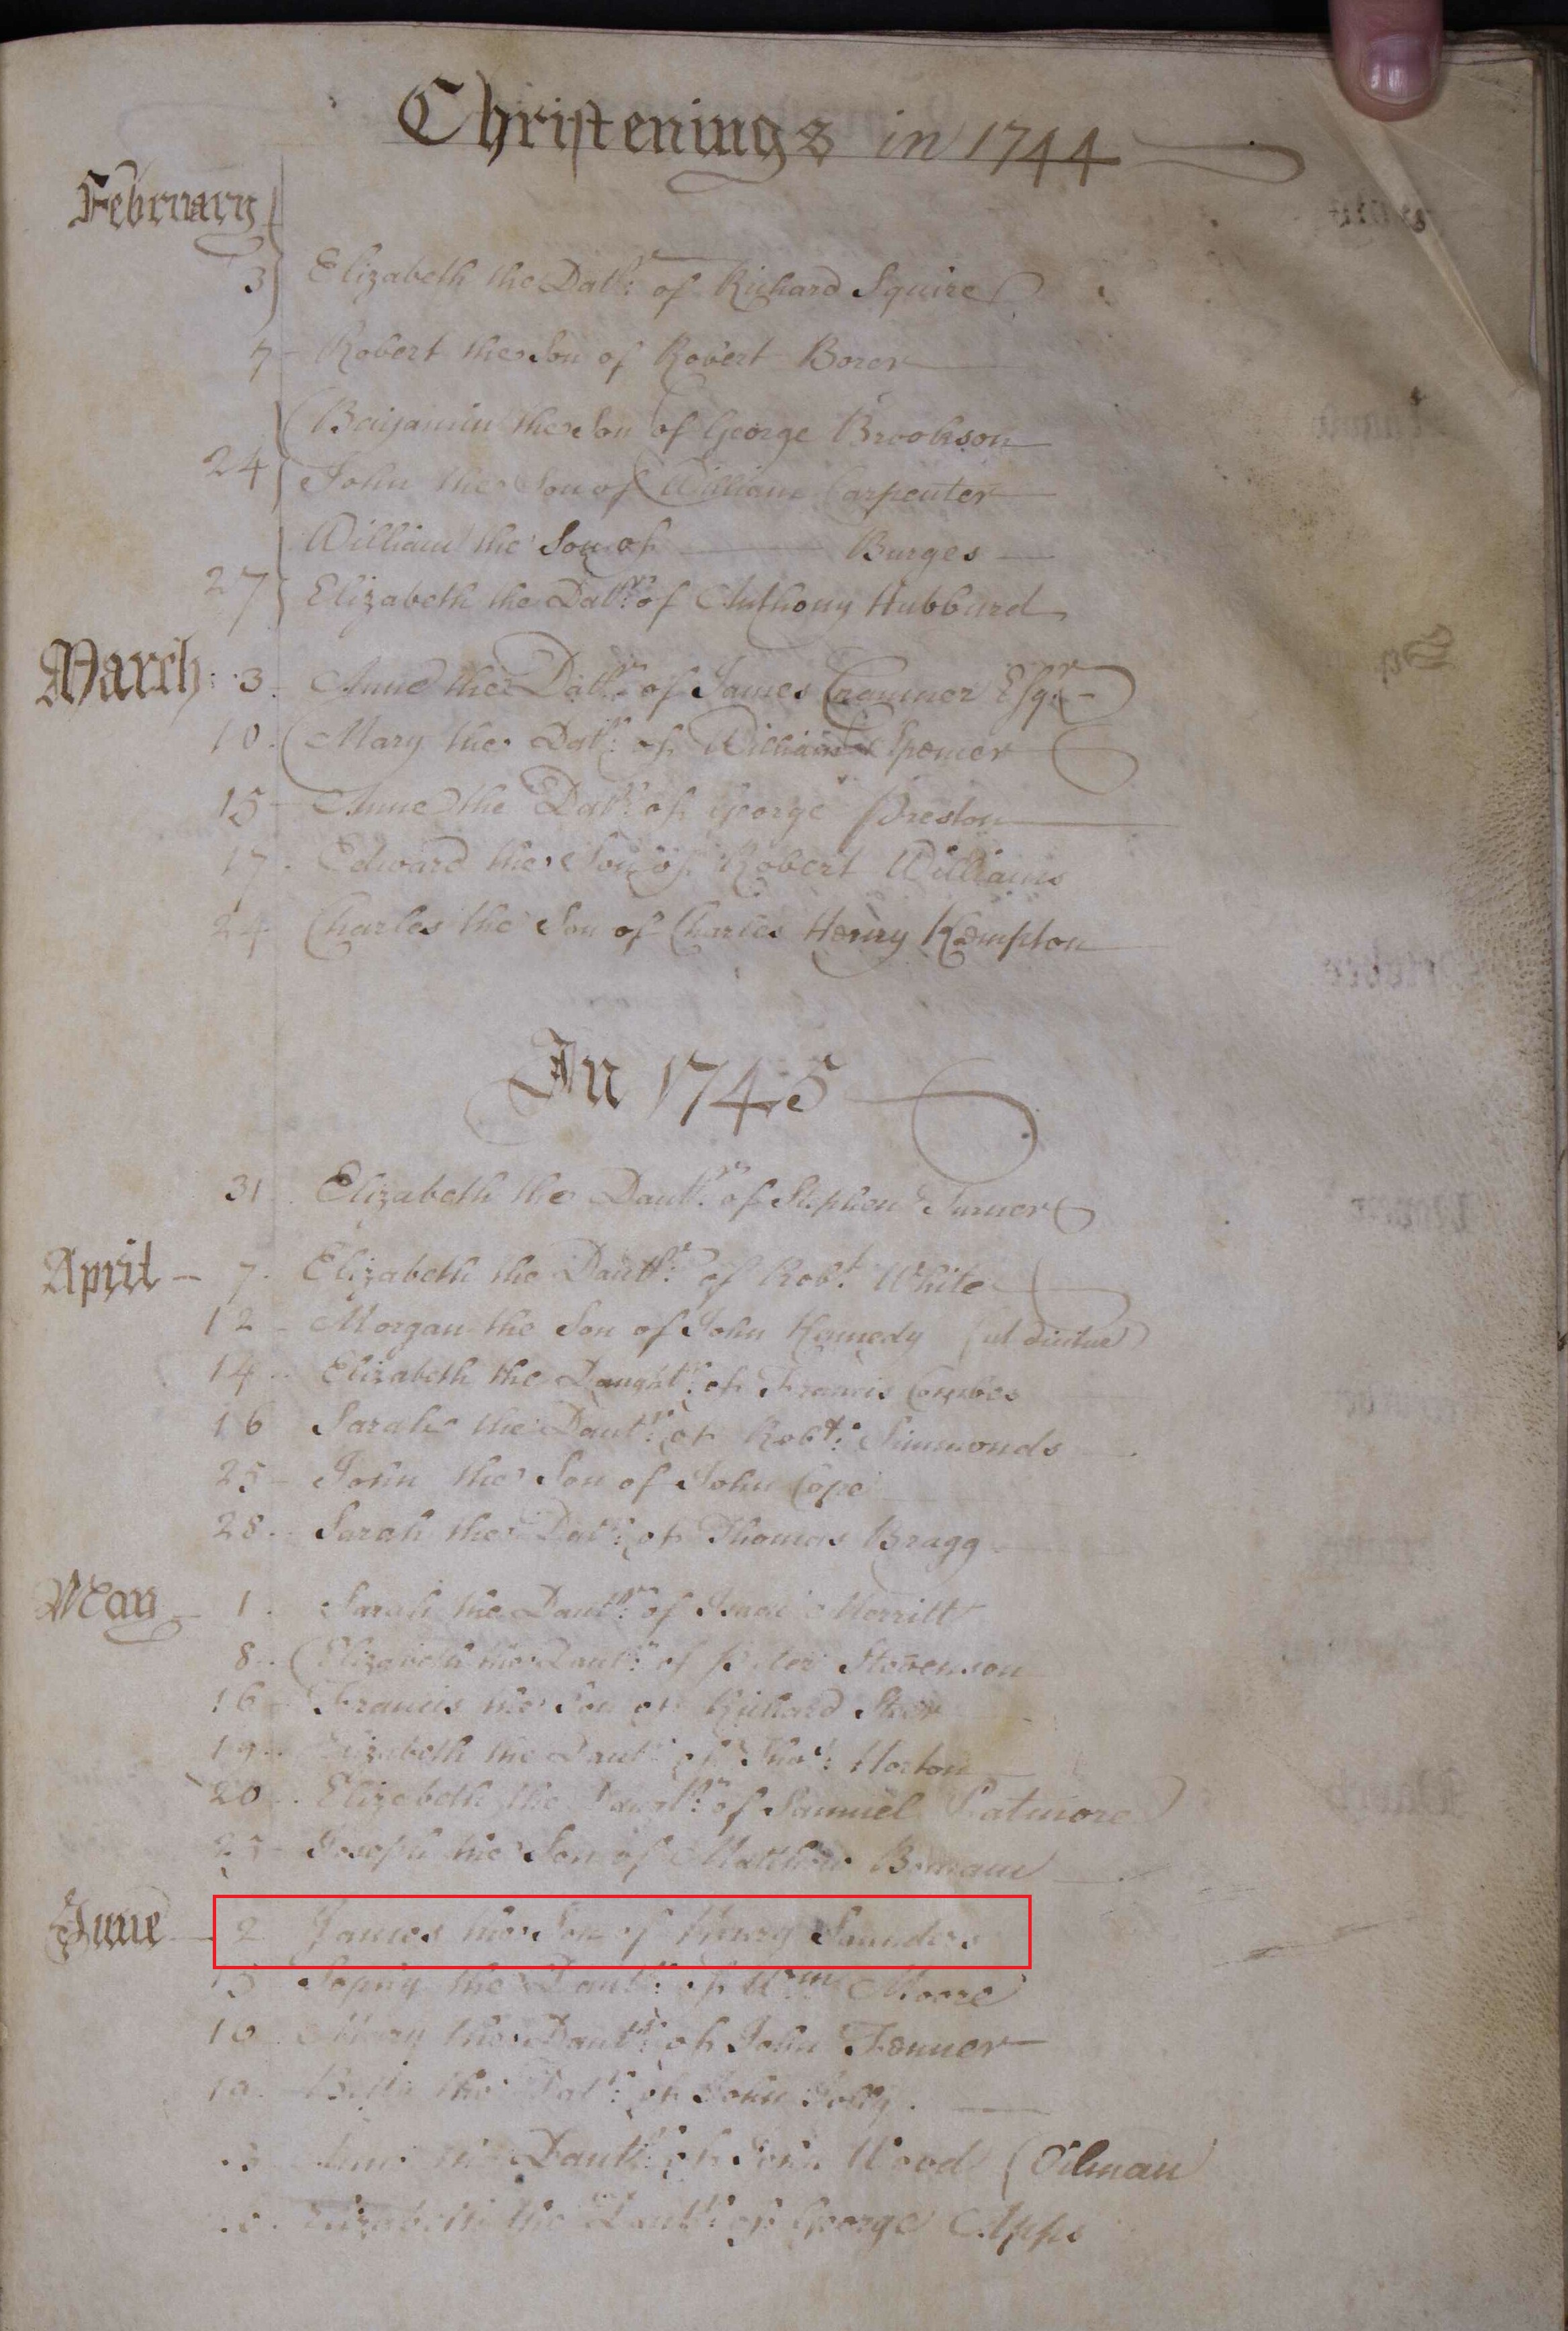 Christenings in 1744
February
3 Elizabeth the Datr: of Richard Squire
7 - Robert the Son of Robert Borer
Benjamin the Son of George Brookson
24 John the Son of William Carpenter
William the Son of ——— Burges
27 Elizabeth the Datr: of Anthony Hubburd
March: 3 Anne the Datr: of James Cranmer Esqr
10. Mary the Datr: of William Spencer
15 - Anne the Datr: of George Preston
17. Edward the Son of Robert Williams
24 Charles the Son of Charles Henry Kempton
In 1745
31 Elizabeth the Dautr: of Stephen Turner
April - 7. Elizabeth the Dautr: of Robt. White
12 - Morgan the Son of John Kennedy (ut dictus)
14 Elizabeth the Daughtr: of Francis Combes
16 Sarah the Dautr: of Robt: Simmonds
25 - John the Son of John Cope
28. Sarah the Datr: of Thomas Bragg
May - 1. Sarah the Dautr: of Isaac Merritt
8. Elizabeth the Dautr: of Peter Stevenson
16 - Francis the Son of Richard
19 Elizabeth the Dautr: of Thos: Horton
20 Elizabeth the Daugtr: of Samuel Patmore
25 Joseph the Son of Matthew
June 2 James the Son of Henry Saunders
the Dautr: of Wm Moore
Mary the Dautr: of John Fenner
the Datr: of John Jolly.
the Dautr: of John Wood (Oilman
Elizabeth the Dautr: of George Apps